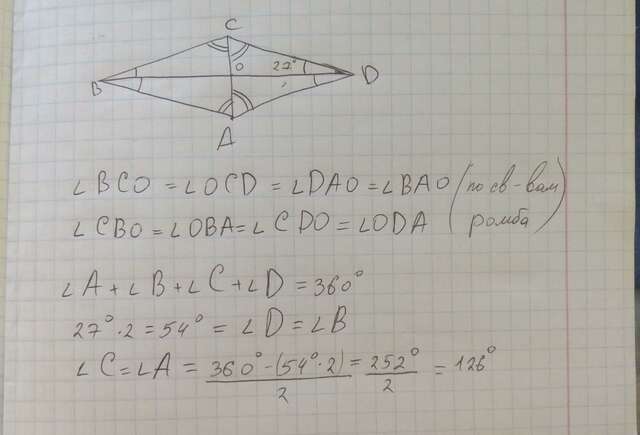 C
O 27°
B D
A
∠BCO = ∠OCD = ∠DAO = ∠BAO (по св-вам
∠CBO = ∠OBA = ∠CDO = ∠ODA ромба)
∠A + ∠B + ∠C + ∠D = 360°
27°·2 = 54° = ∠D = ∠B
∠C = ∠A = (360° - (54°·2))/2 = 252°/2 = 126°